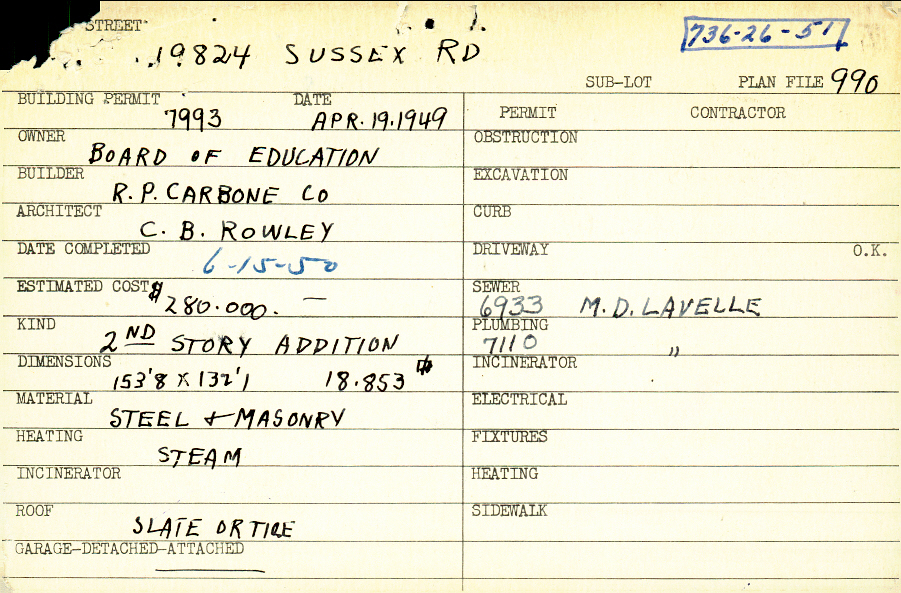 STREET
736-26-51
19824 SUSSEX RD
SUB-LOT PLAN FILE 990
BUILDING PERMIT 7993 DATE APR. 19. 1949
PERMIT CONTRACTOR
OWNER BOARD OF EDUCATION
OBSTRUCTION
BUILDER R. P. CARBONE CO
EXCAVATION
ARCHITECT C. B. ROWLEY
CURB
DATE COMPLETED 6-15-50
DRIVEWAY O.K.
ESTIMATED COST $280.000. —
SEWER 6933 M. D. LAVELLE
KIND 2ND STORY ADDITION
PLUMBING 7110 "
DIMENSIONS 153'8 X 132'1 18.853
INCINERATOR
MATERIAL STEEL + MASONRY
ELECTRICAL
HEATING STEAM
FIXTURES
INCINERATOR
HEATING
ROOF SLATE OR TILE
SIDEWALK
GARAGE-DETACHED-ATTACHED